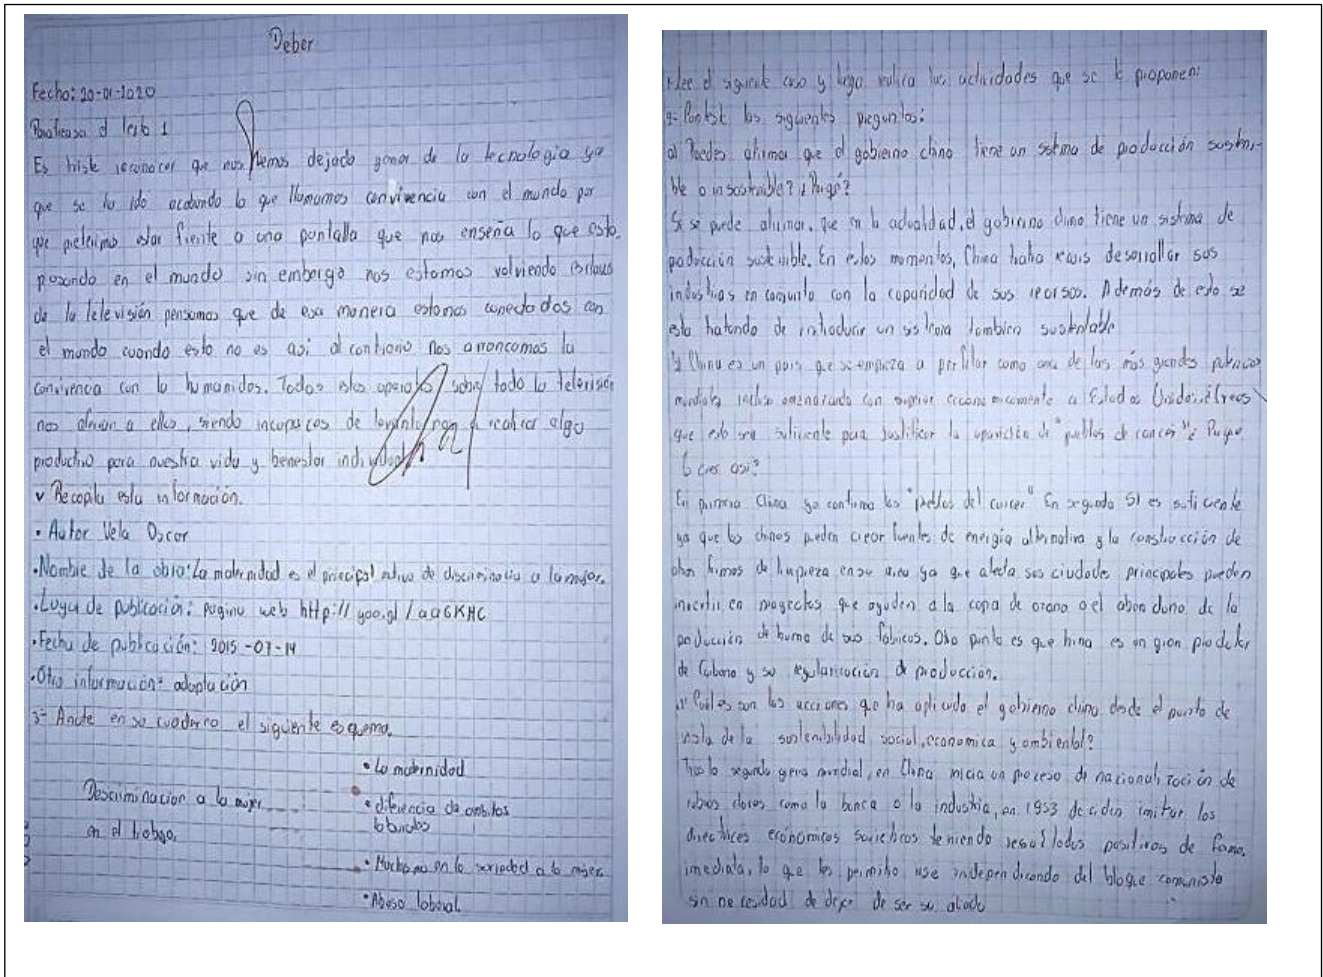 Deber
Fecha: 20-01-2020
Parafraseo d texto 1
Es triste reconocer que nos hemos dejado ganar de la tecnologia ya
que se ha ido acabando lo que llamamos convivencia con el mundo por
que preferimos estar frente a una pantalla que nos enseña lo que esta
pasando en el mundo sin embargo nos estamos volviendo
de la televisión pensamos que de esa manera estamos conectados con
el mundo cuando esto no es asi al contrario nos arrancamos la
convivencia con la humanidad. Todos estos aparatos sobre todo la televisión
nos a ellos, siendo incapaces de realizar algo
productivo para nuestra vida y bienestar individual
v Recopila esta información.
• Autor Vela Oscar
• Nombre de la obra: La maternidad es el principal motivo de a la mujer.
• Lugar de publicación: pagina web http://goo.gl/aaGKHC
• Fecha de publicación: 2015-07-14
• Otra información: adaptación
3- Anote en su cuaderno el siguiente esquema.
• La maternidad
Descriminacion a la mujer
en el trabajo.
• diferencia de ambitos
laborales
• en la sociedad a la mujer
• Abuso laboral.
Lee el siguiente caso y luego realica las actividades que se le proponen:
las siguientes preguntas:
a) Puedes afirmar que el gobierno chino tiene un sistema de producción sosteni-
ble o insostenible? ¿Porqué?
Si se puede afirmar, que en la actualidad, el gobierno chino tiene un sistema de
producción sostenible. En estos momentos, China desarrollar sus
industrias en conjunto con la capacidad de sus recursos. Además de esto se
esta tratando de introducir un sistema tambien sustentable
China es un pais que se empieza a perfilar como una de las más grandes potencias
mundiales incluso con superar economicamente a Estados Unidos. ¿Crees
que esto sea suficiente para justificar la aparición de "pueblos de cancer"? Porque
lo cree asi?
En primera China ya confirmo los "pueblos del cancer" En segunda SI es suficiente
ya que los chinos pueden crear fuentes de energía alternativa y la construcción de
otras formas de limpieza en su area ya que afecta sus ciudades principales pueden
invertir en proyectos que ayuden a la capa de ozono o el abandono de la
producción de humo de sus fabricas. Otro punto es que hina es un gran productor
de Carbono y su regularización de producción.
Cuáles son las acciones que ha aplicado el gobierno chino desde el punto de
vista de la sostenibilidad social, economica y ambiental?
Tras la segunda guerra mundial, en China inicia un proceso de nacionalización de
rubros claves como la banca o la industria, en 1953 deciden imitar los
directrices económicos soviéticos teniendo resultados positivos de forma
inmediata, lo que les permitio irse independizando del bloque comunista
sin necesidad de dejar de ser su aliado